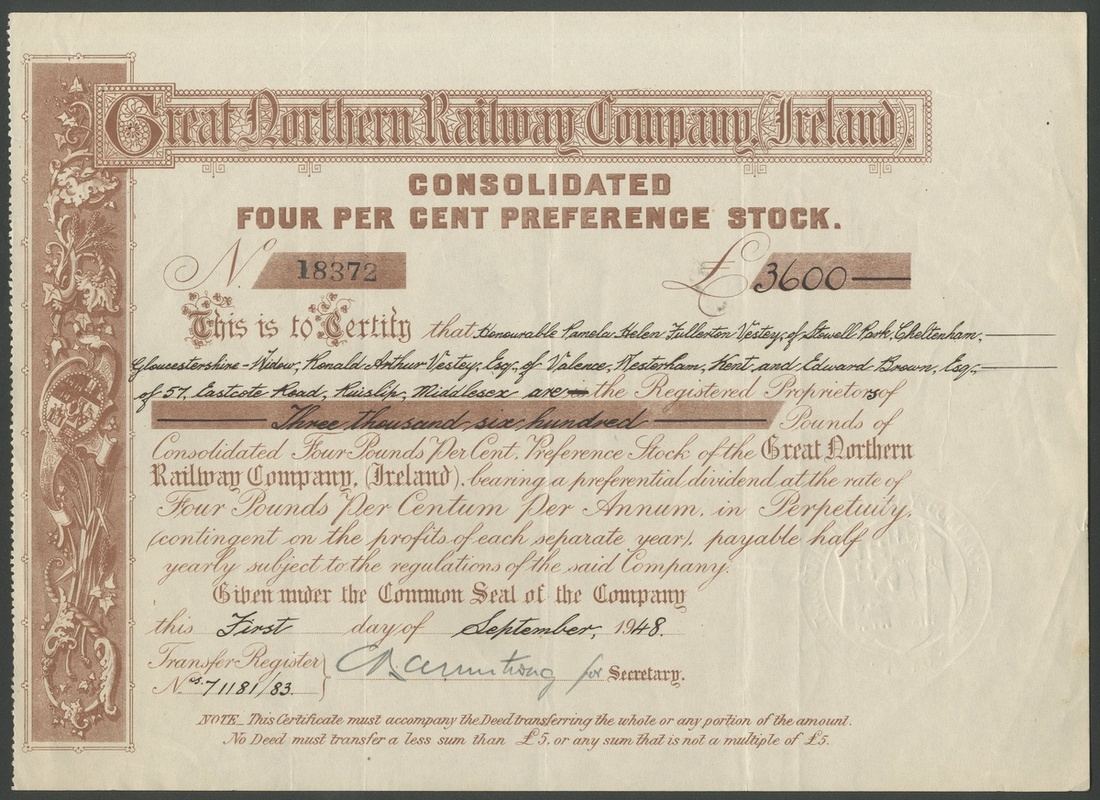 Great Northern Railway Company, (Ireland).
CONSOLIDATED
FOUR PER CENT PREFERENCE STOCK.
No. 18372 £3600
This is to Certify that Honourable Pamela Helen Fullerton Vestey, of Stowell Park, Cheltenham,
Gloucestershire - Widow, Ronald Arthur Vestey, Esq., of Valence, Westerham, Kent, and Edward Brown, Esq.,
of 57, Eastcote Road, Ruislip, Middlesex are the Registered Proprietors of
Three thousand six hundred Pounds of
Consolidated Four Pounds Per Cent, Preference Stock of the Great Northern
Railway Company, (Ireland), bearing a preferential dividend at the rate of
Four Pounds Per Centum Per Annum, in Perpetuity,
(contingent on the profits of each separate year), payable half
yearly subject to the regulations of the said Company.
Given under the Common Seal of the Company
this First day of September, 1948.
Transfer Register
Nos. 71181/83. Armstrong for Secretary.
NOTE_ This Certificate must accompany the Deed transferring the whole or any portion of the amount.
No Deed must transfer a less sum than £5, or any sum that is not a multiple of £5.